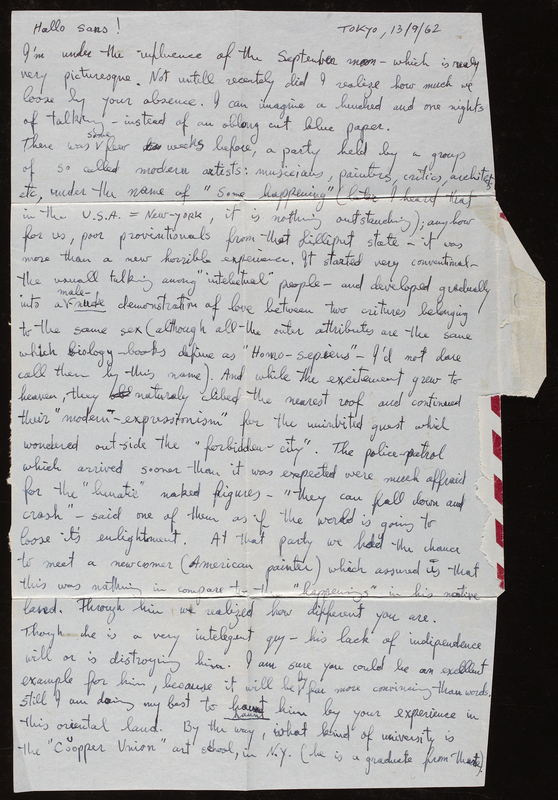 Hallo Sans!
TOKYO, 13/9/62
I'm under the influence of the September moon - which is realy
very picturesque. Not untill recentely did I realize how much we
loose by your absence. I can imagine a hundred and one nights
of talking - instead of an oblong cut blue paper.
There was some few weeks before, a party held by a group
of so called modern artists: musicians, painters, critics, architects
etc, under the name of "Some happening" (later I heard that
in the U.S.A. = New-york, it is nothing outstanding); anyhow
for us, poor proventionals from that Lilliput state - it was
more than a new horrible experience. It started very conventional -
the usuall talking among "intelectual" people - and developed gradually
into a male-nude demonstration of love between two critures belonging
to the same sex (although all the outer attributes are the same
which biology-books define as "Homo-sepiens" - I'd not dare
call them by this name). And while the excitement grew to
heaven, they naturaly climed the nearest roof and continued
their "modern-expressionism" for the uninvited guest which
wondered out-side the "forbidden-city". The police-patrol
which arrived sooner than it was expected were much affraid
for the "lunatic" naked figures - "they can fall down and
crash" - said one of them as if the world is going to
loose its enlightment. At that party we had the chance
to meet a newcomer (American painter) which assured us that
this was nothing in compare to the "happenings" in his native
land. Through him we realized how different you are.
Thogh he is a very inteligent guy - his lack of independence
will or is distroying him. I am sure you could be an excellent
example for him, because it will be by far more convincing than words.
still I am doing my best to haunt him by your experience in
this oriental land. By the way, what kind of university is
the "Coopper Union" art school, in N.Y. (he is a graduate from there).